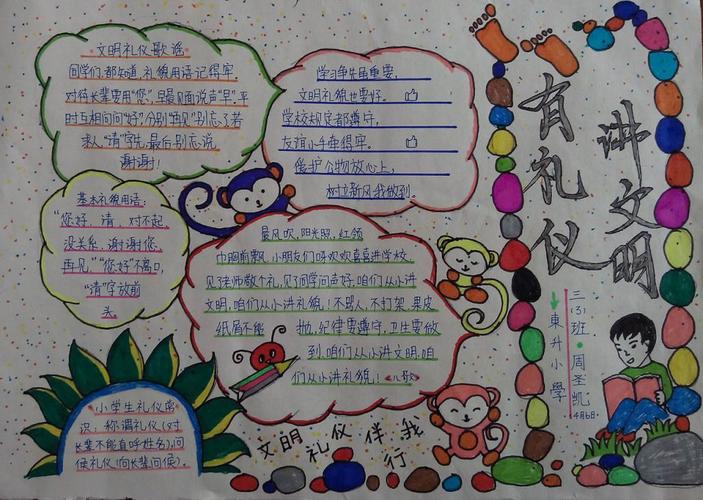 讲文明
有礼仪
三(3)班 周圣凯
4月6日
東升小學
文明礼仪歌谣
同学们,都知道,礼貌用语记得牢。
对待长辈要用“您”,早晨见面说声“早”。平
时互相问问“好”,分别“再见”别忘了。若
求人“请”字先,最后别忘说
谢谢!
学习争先虽重要,
文明礼貌也要好。
学校规定都遵守,
友谊小手牵得牢。
爱护公物放心上,
树立新风我做到。
基本礼貌用语:
“您好、请、对不起、
没关系、谢谢您、
再见,”“您好”不离口,
“请”字放前
头。
晨风吹,阳光照,红领
巾胸前飘,小朋友们呀欢欢喜喜进学校
见了老师敬个礼,见了同学问声好,咱们从小讲
文明,咱们从小讲礼貌!不骂人,不打架,果皮
纸屑不能 抛,纪律要遵守,卫生要做
到,咱们从小讲文明,咱
们从小讲礼貌!
小学生礼仪常
识:称谓礼仪(对
长辈不能直呼姓名),问
候礼仪(向长辈问候)。
文明礼仪伴我行